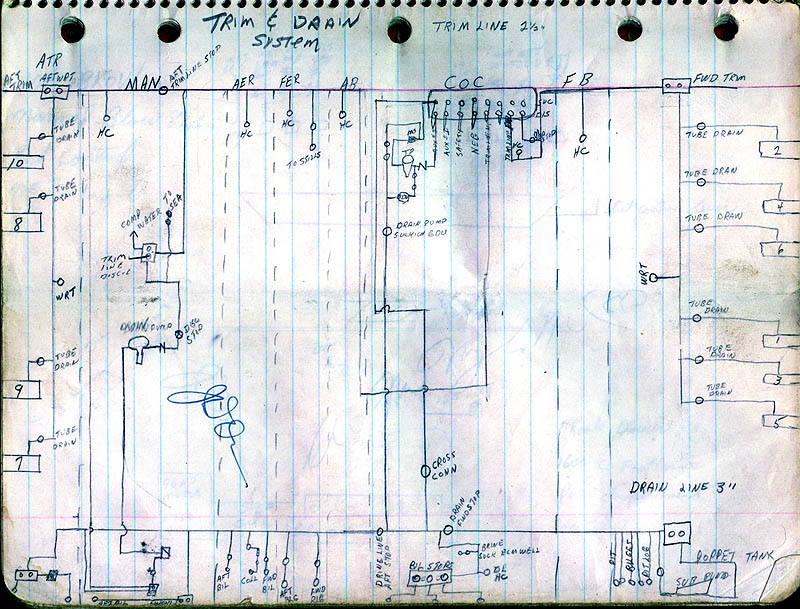 TRIM & DRAIN
System
TRIM LINE 2½"
ATR
AFT
TRIM
AFT WRT
MAN
AFT
TRIM LINE STOP
AER
FER
AB
COC
FB
FWD TRIM
HC
HC
HC
HC
HC
TO STILLS
SUC
DIS
AUX I
AUX II
SAFETY
NEG
HC
TUBE
DRAIN
10
TUBE
DRAIN
8
WRT
TUBE
DRAIN
9
TUBE
DRAIN
7
COMP
WATER
TO
SEA
TRIM
LINE
DRAIN PUMP
DISC
STOP
DRAIN PUMP
CROSS
CONN
DRAIN
FWD STOP
TUBE DRAIN
2
TUBE DRAN
4
TUBE DRAW
6
WRT
TUBE
DRAIN
1
TUBE
DRAIN
3
TUBE
DRAIN
5
DRAIN LINE 3"
AFT
BIL
COLL
FWD
BIL
AFT
FWD
DRAIN LINE
AFT STOP
BIL STOPS
BRINE
HC
PIT
POPPET TANK
SUMP